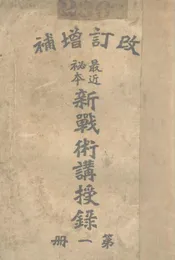 改訂增補
最近
秘本
新戰術講授錄
第一册